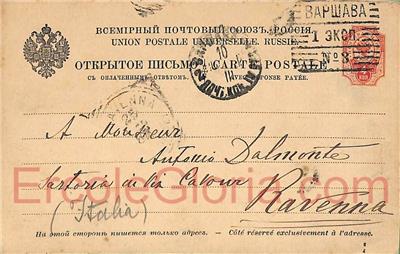 ВСЕМІРНЫЙ ПОЧТОВЫЙ СОЮЗЪ. РОССІЯ.
UNION POSTALE UNIVERSELLE. RUSSIE.
ОТКРЫТОЕ ПИСЬМО. CARTE POSTALE
СЪ ОПЛАЧЕННЫМЪ ОТВѢТОМЪ. RÉPONSE PAYÉE.
ВАРШАВА
1 ЭКСП.
№ 8
10
III
A Monsieur
Antonio Dalmonte
Sartoria
Ravenna
(Italia)
ErcoleGloria.com
На этой сторонѣ пишется только адресъ. - Côté réservé exclusivement à l'adresse.